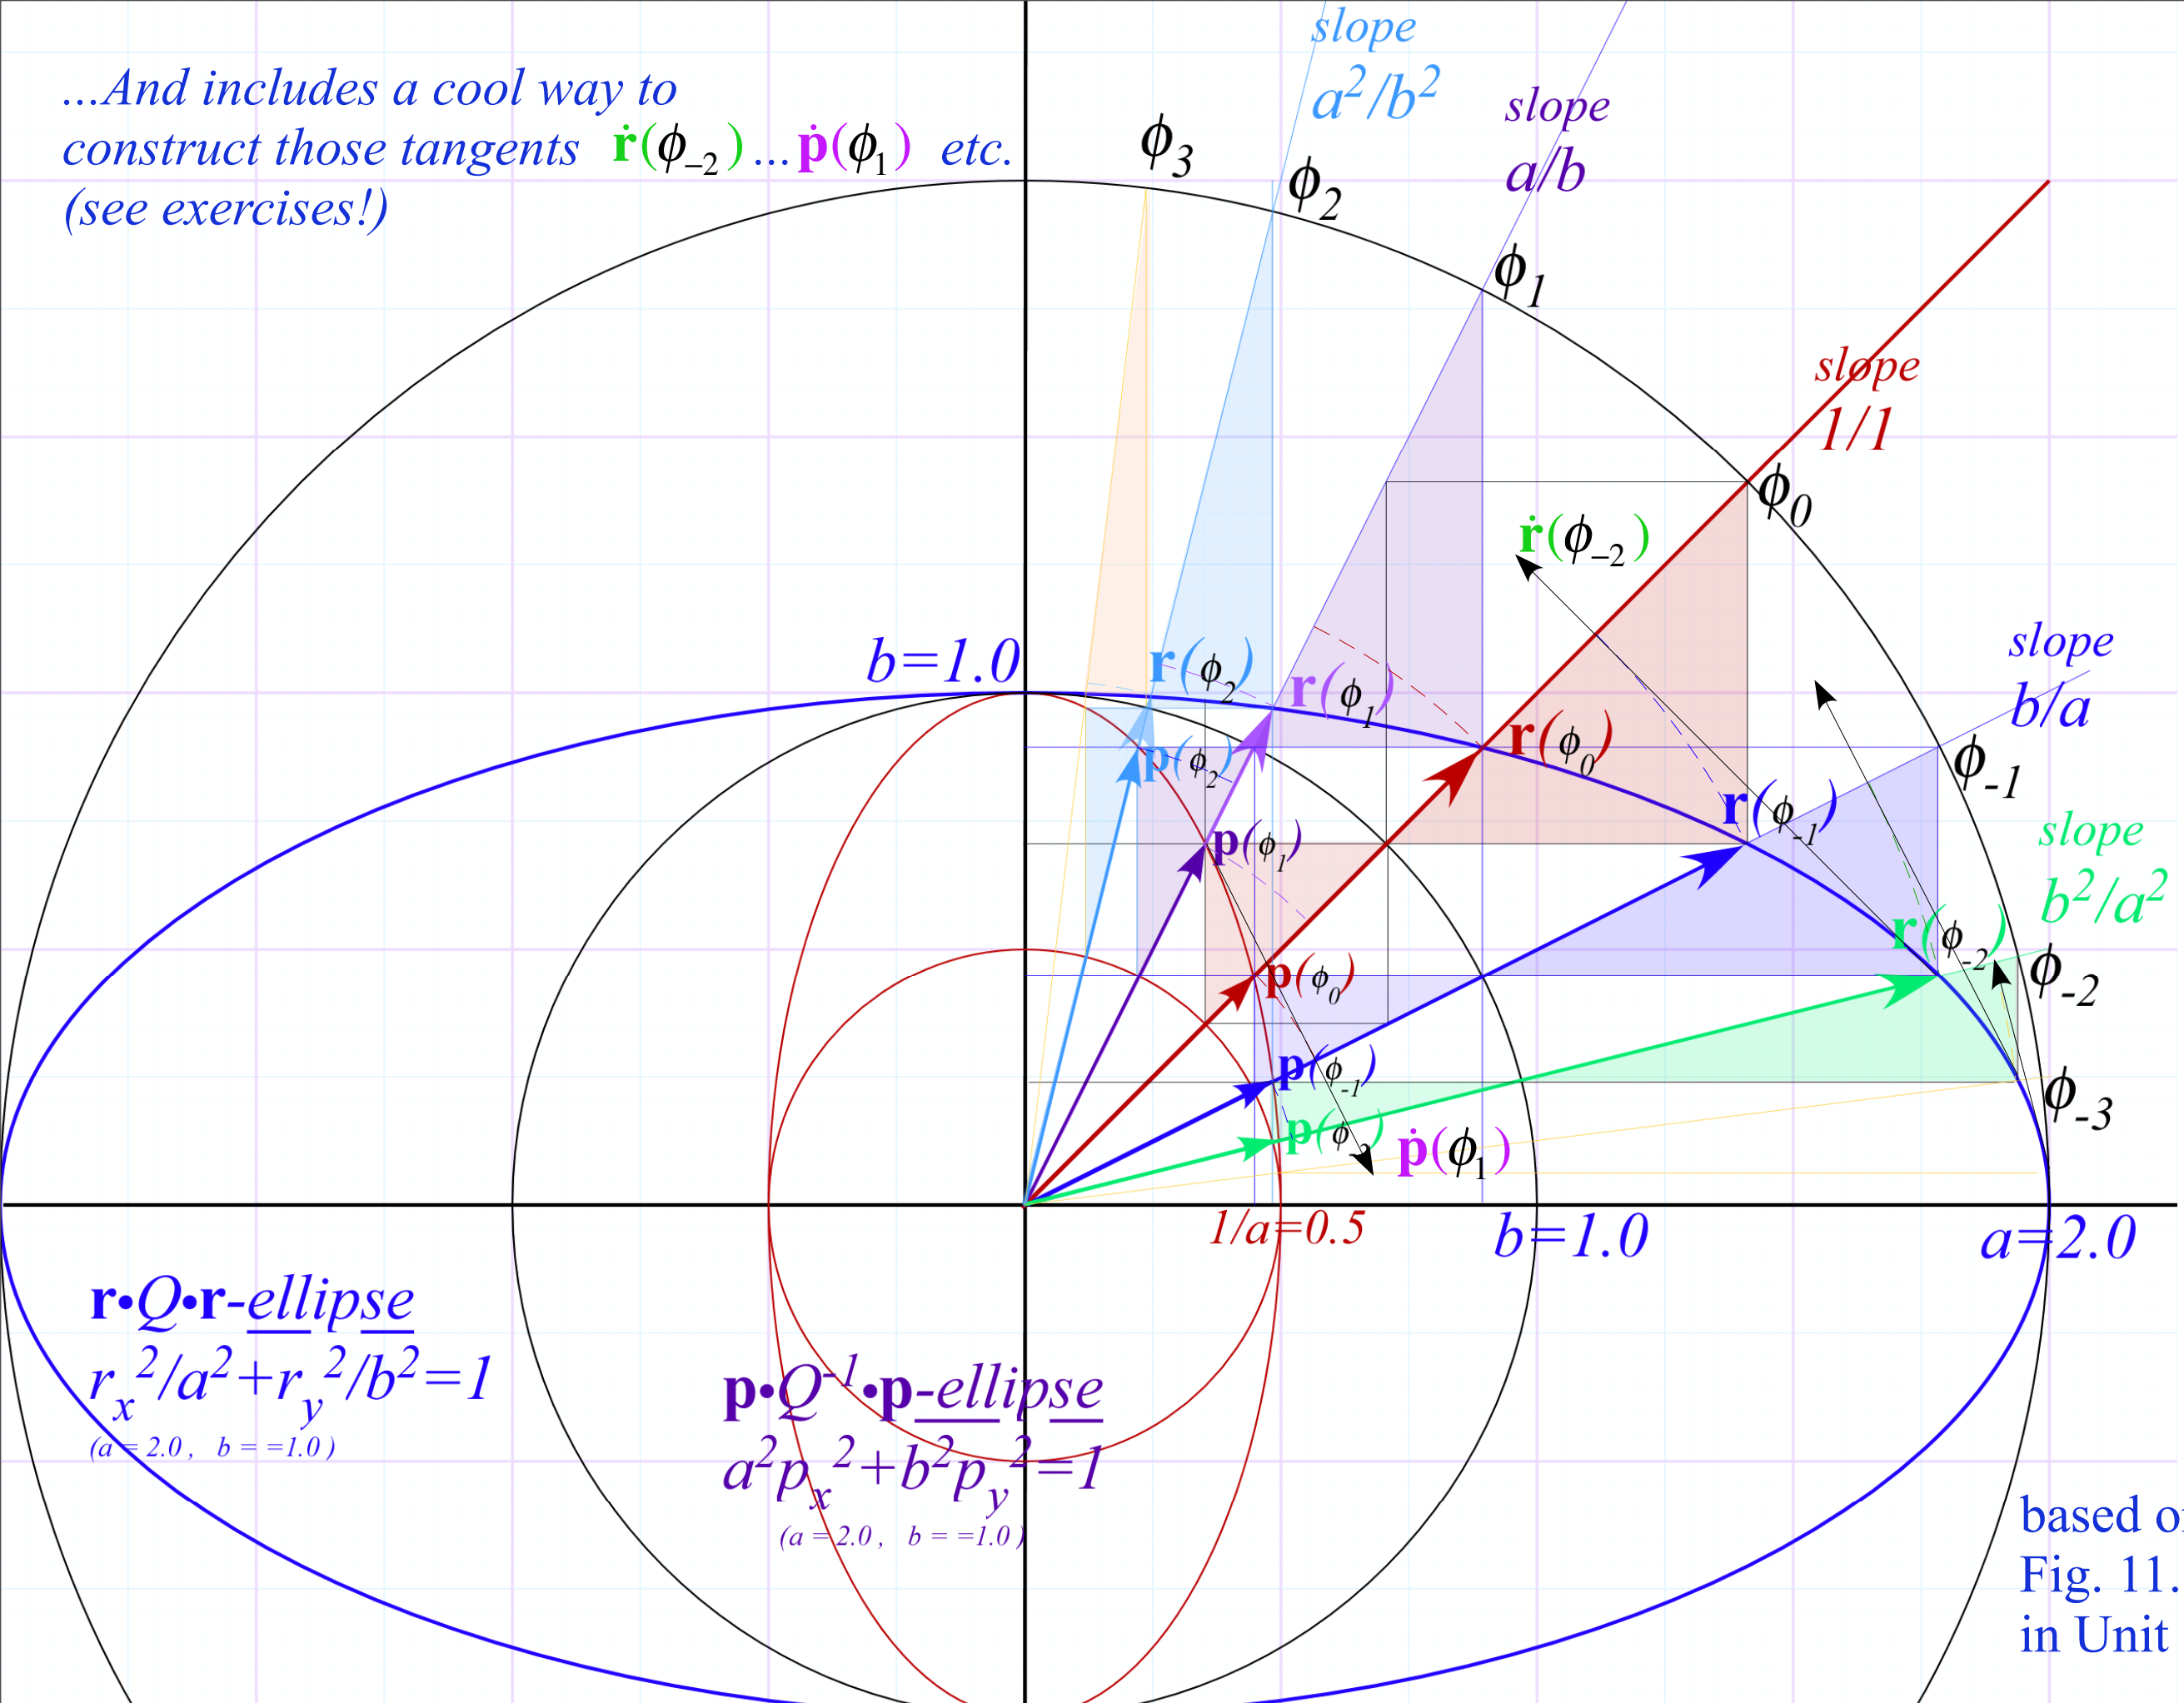 ...And includes a cool way to
construct those tangents ṙ(ϕ₋₂)...ṗ(ϕ₁) etc.
(see exercises!)
slope
a²/b²
slope
a/b
ϕ₃
ϕ₂
ϕ₁
slope
1/1
ϕ₀
ṙ(ϕ₋₂)
b=1.0
slope
b/a
r(ϕ₂)
r(ϕ₁)
r(ϕ₀)
p(ϕ₂)
ϕ₋₁
r(ϕ₋₁)
p(ϕ₁)
slope
b²/a²
r(ϕ₋₂)
ϕ₋₂
p(ϕ₀)
p(ϕ₋₁)
ϕ₋₃
p(ϕ₋₂)
ṗ(ϕ₁)
1/a=0.5
b=1.0
a=2.0
r•Q•r-ellipse
rₓ²/a²+r_y²/b²=1
(a = 2.0 , b = =1.0 )
p•Q⁻¹•p-ellipse
a²pₓ²+b²p_y²=1
(a = 2.0 , b = =1.0 )
based
Fig. 11.
in Unit